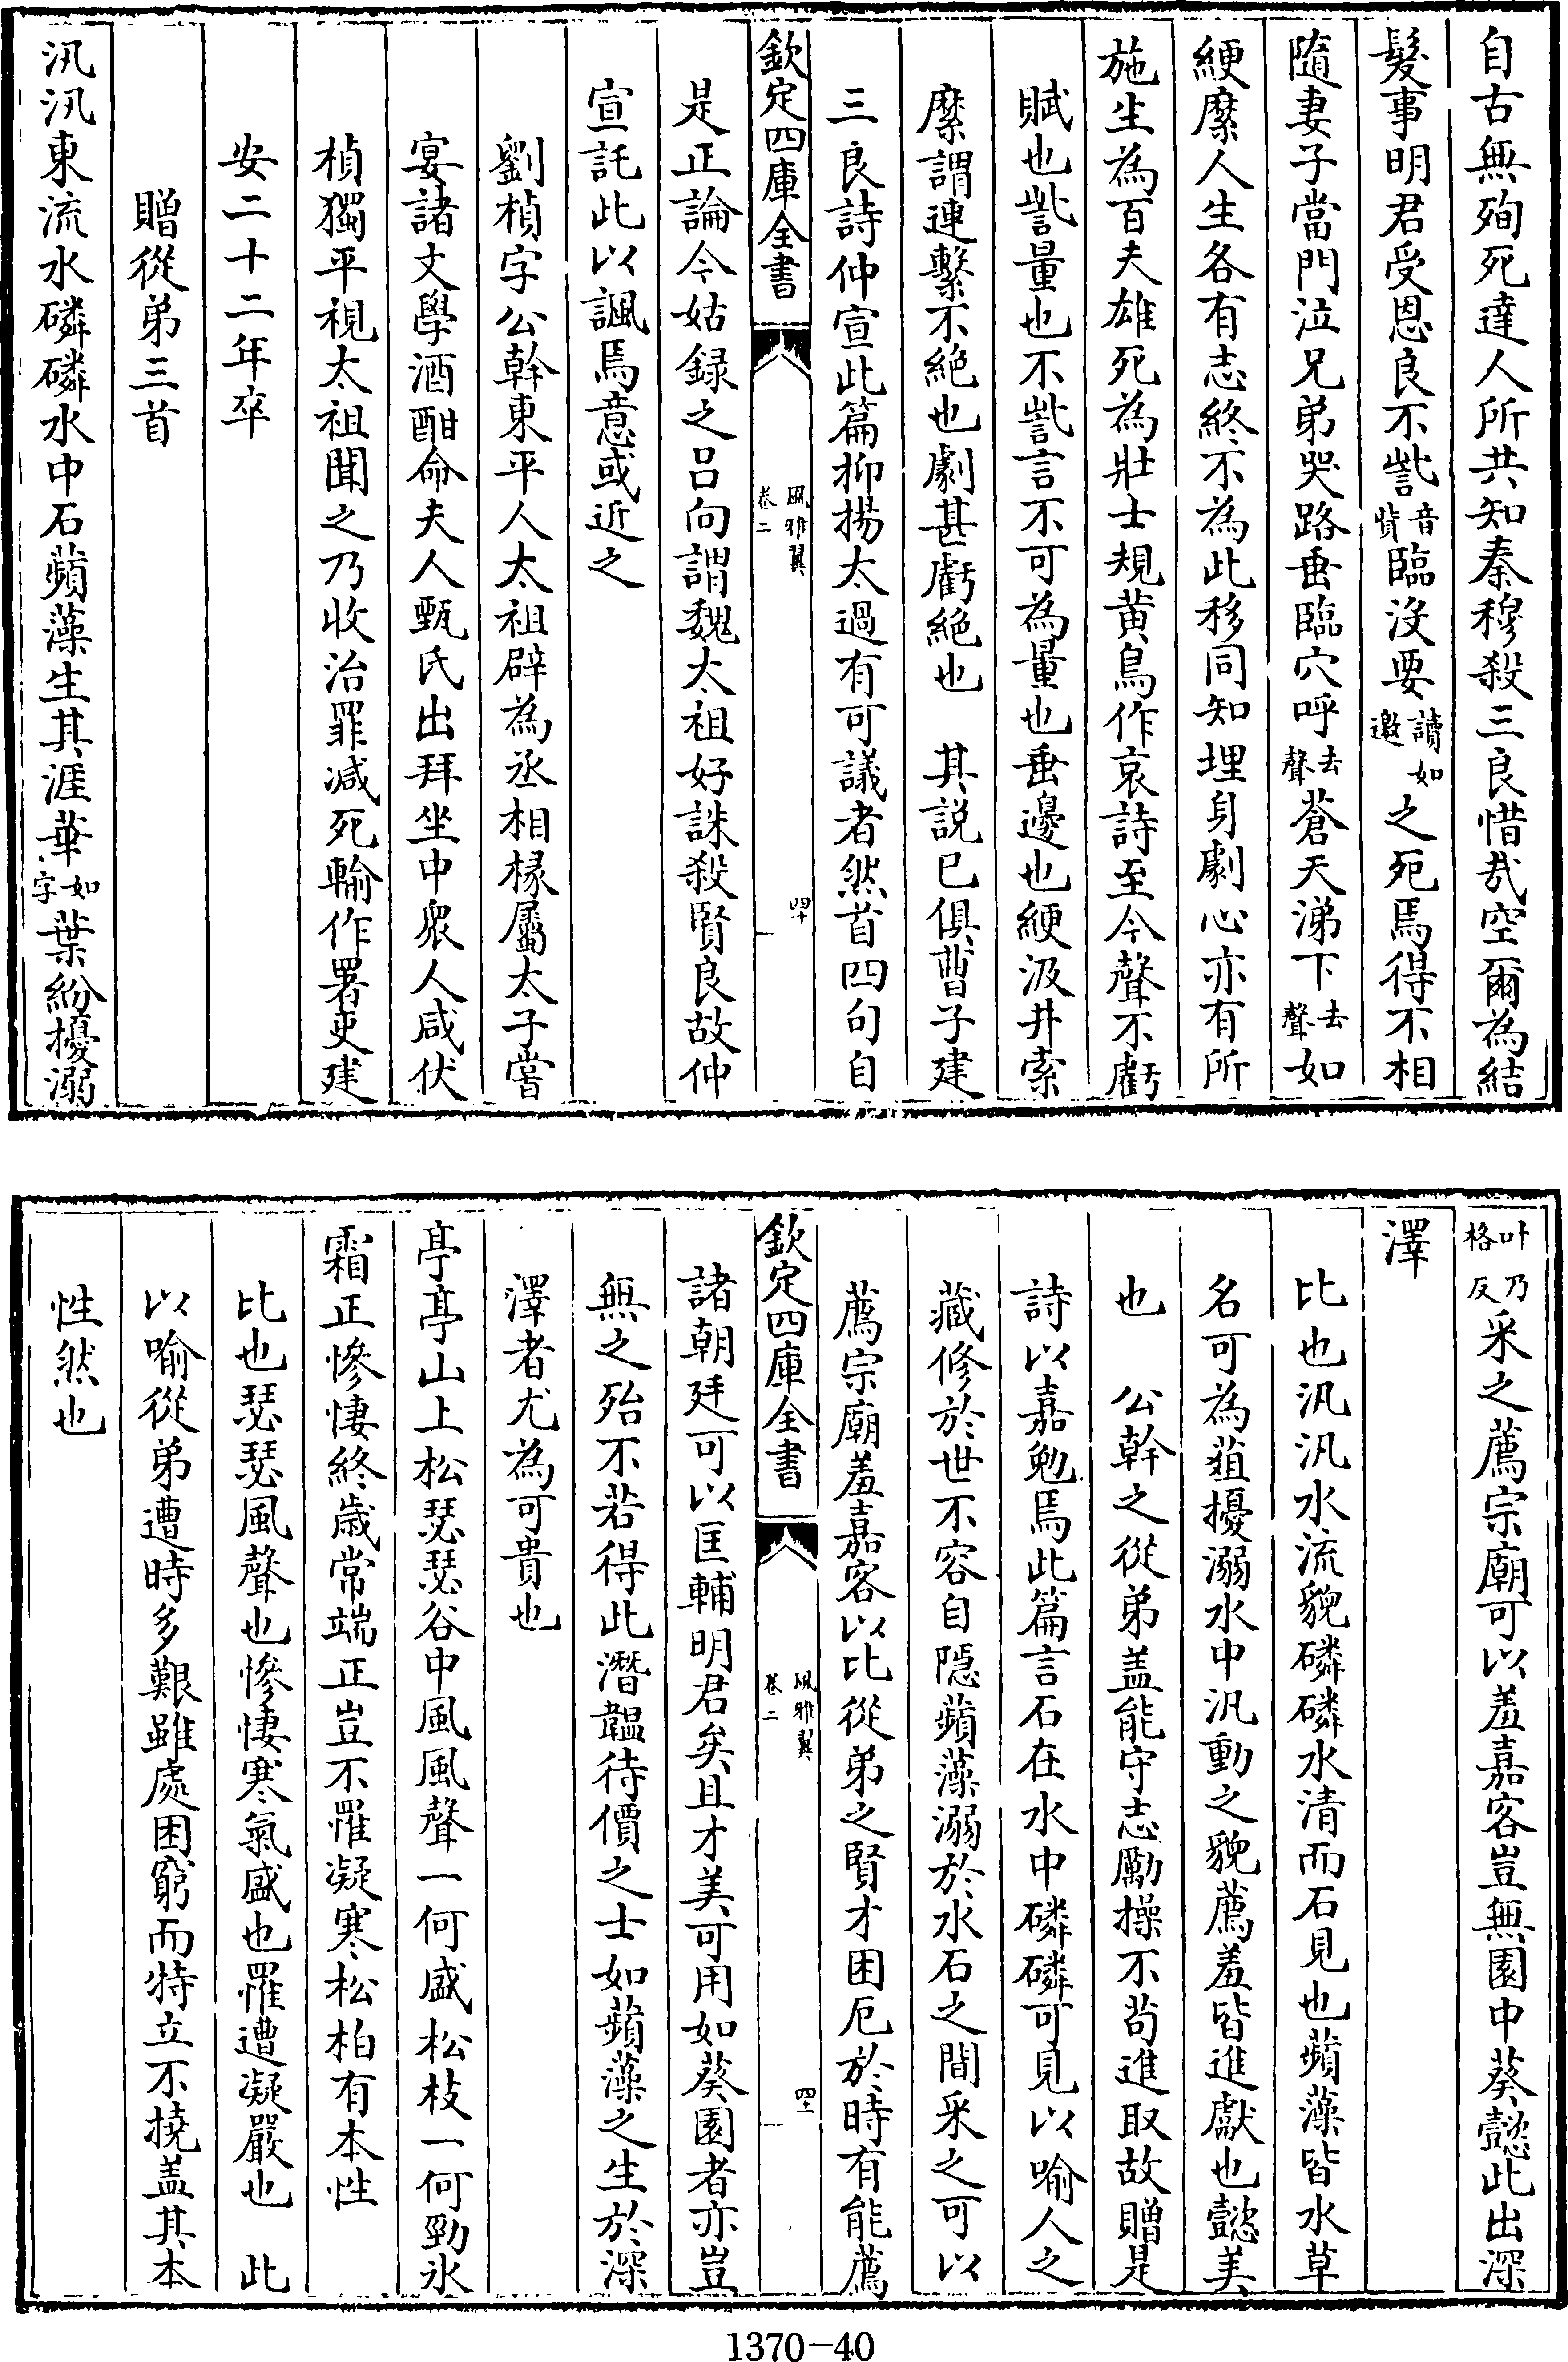 自古無殉死達人所共知秦穆殺三良惜哉空爾為結
髮事明君受恩良不訾音貲臨没要讀如邀之死焉得不相
隨妻子當門泣兄弟哭路垂臨穴呼去聲蒼天涕下去聲如
綆縻人生各有志終不為此移同知埋身劇心亦有所
施生為百夫雄死為壯士規黄鳥作哀詩至今聲不虧
賦也訾量也不訾言不可為量也垂邊也綆汲井索
縻謂連繫不絶也劇甚虧絶也　其説已俱曹子建
三良詩仲宣此篇抑揚太過有可議者然首四句自
欽定四庫全書
風雅翼
卷二
四十
是正論今姑録之呂向謂魏太祖好誅殺賢良故仲
宣託此以諷焉意或近之
劉楨字公幹東平人太祖辟為丞相椽屬太子嘗
宴諸文學酒酣命夫人甄氏出拜坐中衆人咸伏
楨獨平視太祖聞之乃收治罪减死輸作署吏建
安二十二年卒
贈從弟三首
汎汎東流水磷磷水中石蘋藻生其涯華如字葉紛擾溺
叶乃格反采之薦宗廟可以羞嘉客豈無園中葵懿此出深
澤
比也汎汎水流貌磷磷水清而石見也蘋藻皆水草
名可為葅擾溺水中汎動之貌薦羞皆進獻也懿美
也　公幹之從弟盖能守志勵操不苟進取故贈是
詩以嘉勉焉此篇言石在水中磷磷可見以喻人之
藏修於世不容自隠蘋藻溺於水石之間采之可以
薦宗廟羞嘉客以比從弟之賢才困厄於時有能薦
欽定四庫全書
風雅翼
卷二
四十一
諸朝廷可以匡輔明君矣且才美可用如葵園者亦豈
無之殆不若得此潛韞待價之士如蘋藻之生於深
澤者尤為可貴也
亭亭山上松瑟瑟谷中風風聲一何盛松枝一何勁氷
霜正慘悽終歳常端正豈不罹凝寒松柏有本性
比也瑟瑟風聲也慘悽寒氣盛也罹遭凝嚴也　此
以喻從弟遭時多艱雖處困窮而特立不撓盖其本
性然也
1370-40